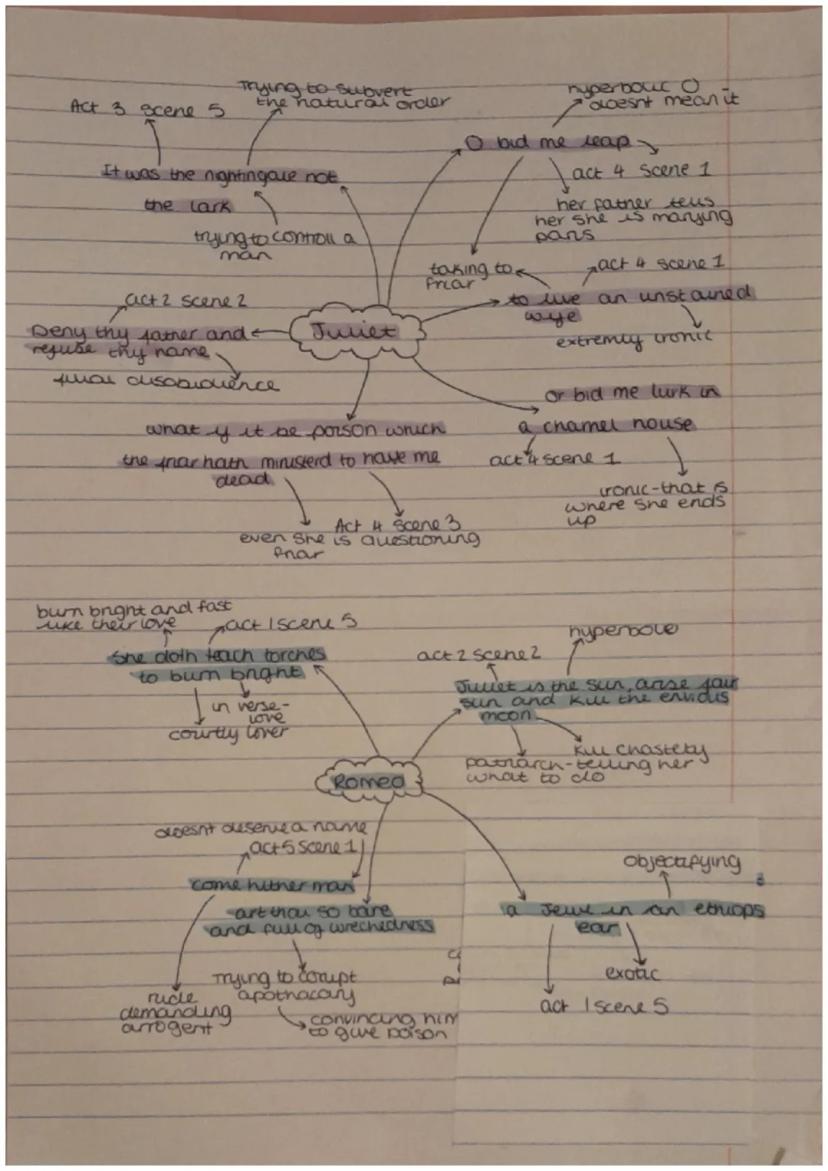 Act 3 scene 5
Trying to subvert
the natural order
It was the nightingale not
the lark
trying to controll a
man
hyperbolic O
doesnt mean it
O bid me leap
act 4 scene 1
her father tells
her she is marying
paris
talking to
friar
act 4 scene 1
to live an unstained
wife
extremly ironic
act 2 scene 2
Deny thy father and
refuse thy name
filial disobidience
Juliet
or bid me lurk in
a charnel house
act 4 scene 1
ironic-that is
where she ends
up
what if it be poison which
the friar hath ministerd to have me
dead
Act 4 scene 3
even she is questioning
friar
burn bright and fast
like their love
act 1 scene 5
She doth teach torches
to burn bright
in verse-
love
courtly lover
act 2 scene 2
hyperbole
Juliet is the sun, arise fair
sun and kill the envious
moon
kill chastety
patriarch-telling her
what to do
Romeo
doesnt deserve a name
act 5 scene 1
come hither man
art thou so bare
and full of wrechedness
rude
demanding
arrogent
Trying to corupt
apothacary
convincing him
to give poison
objectifying
a Jewl in an ethiops
ear
exotic
act 1 scene 5